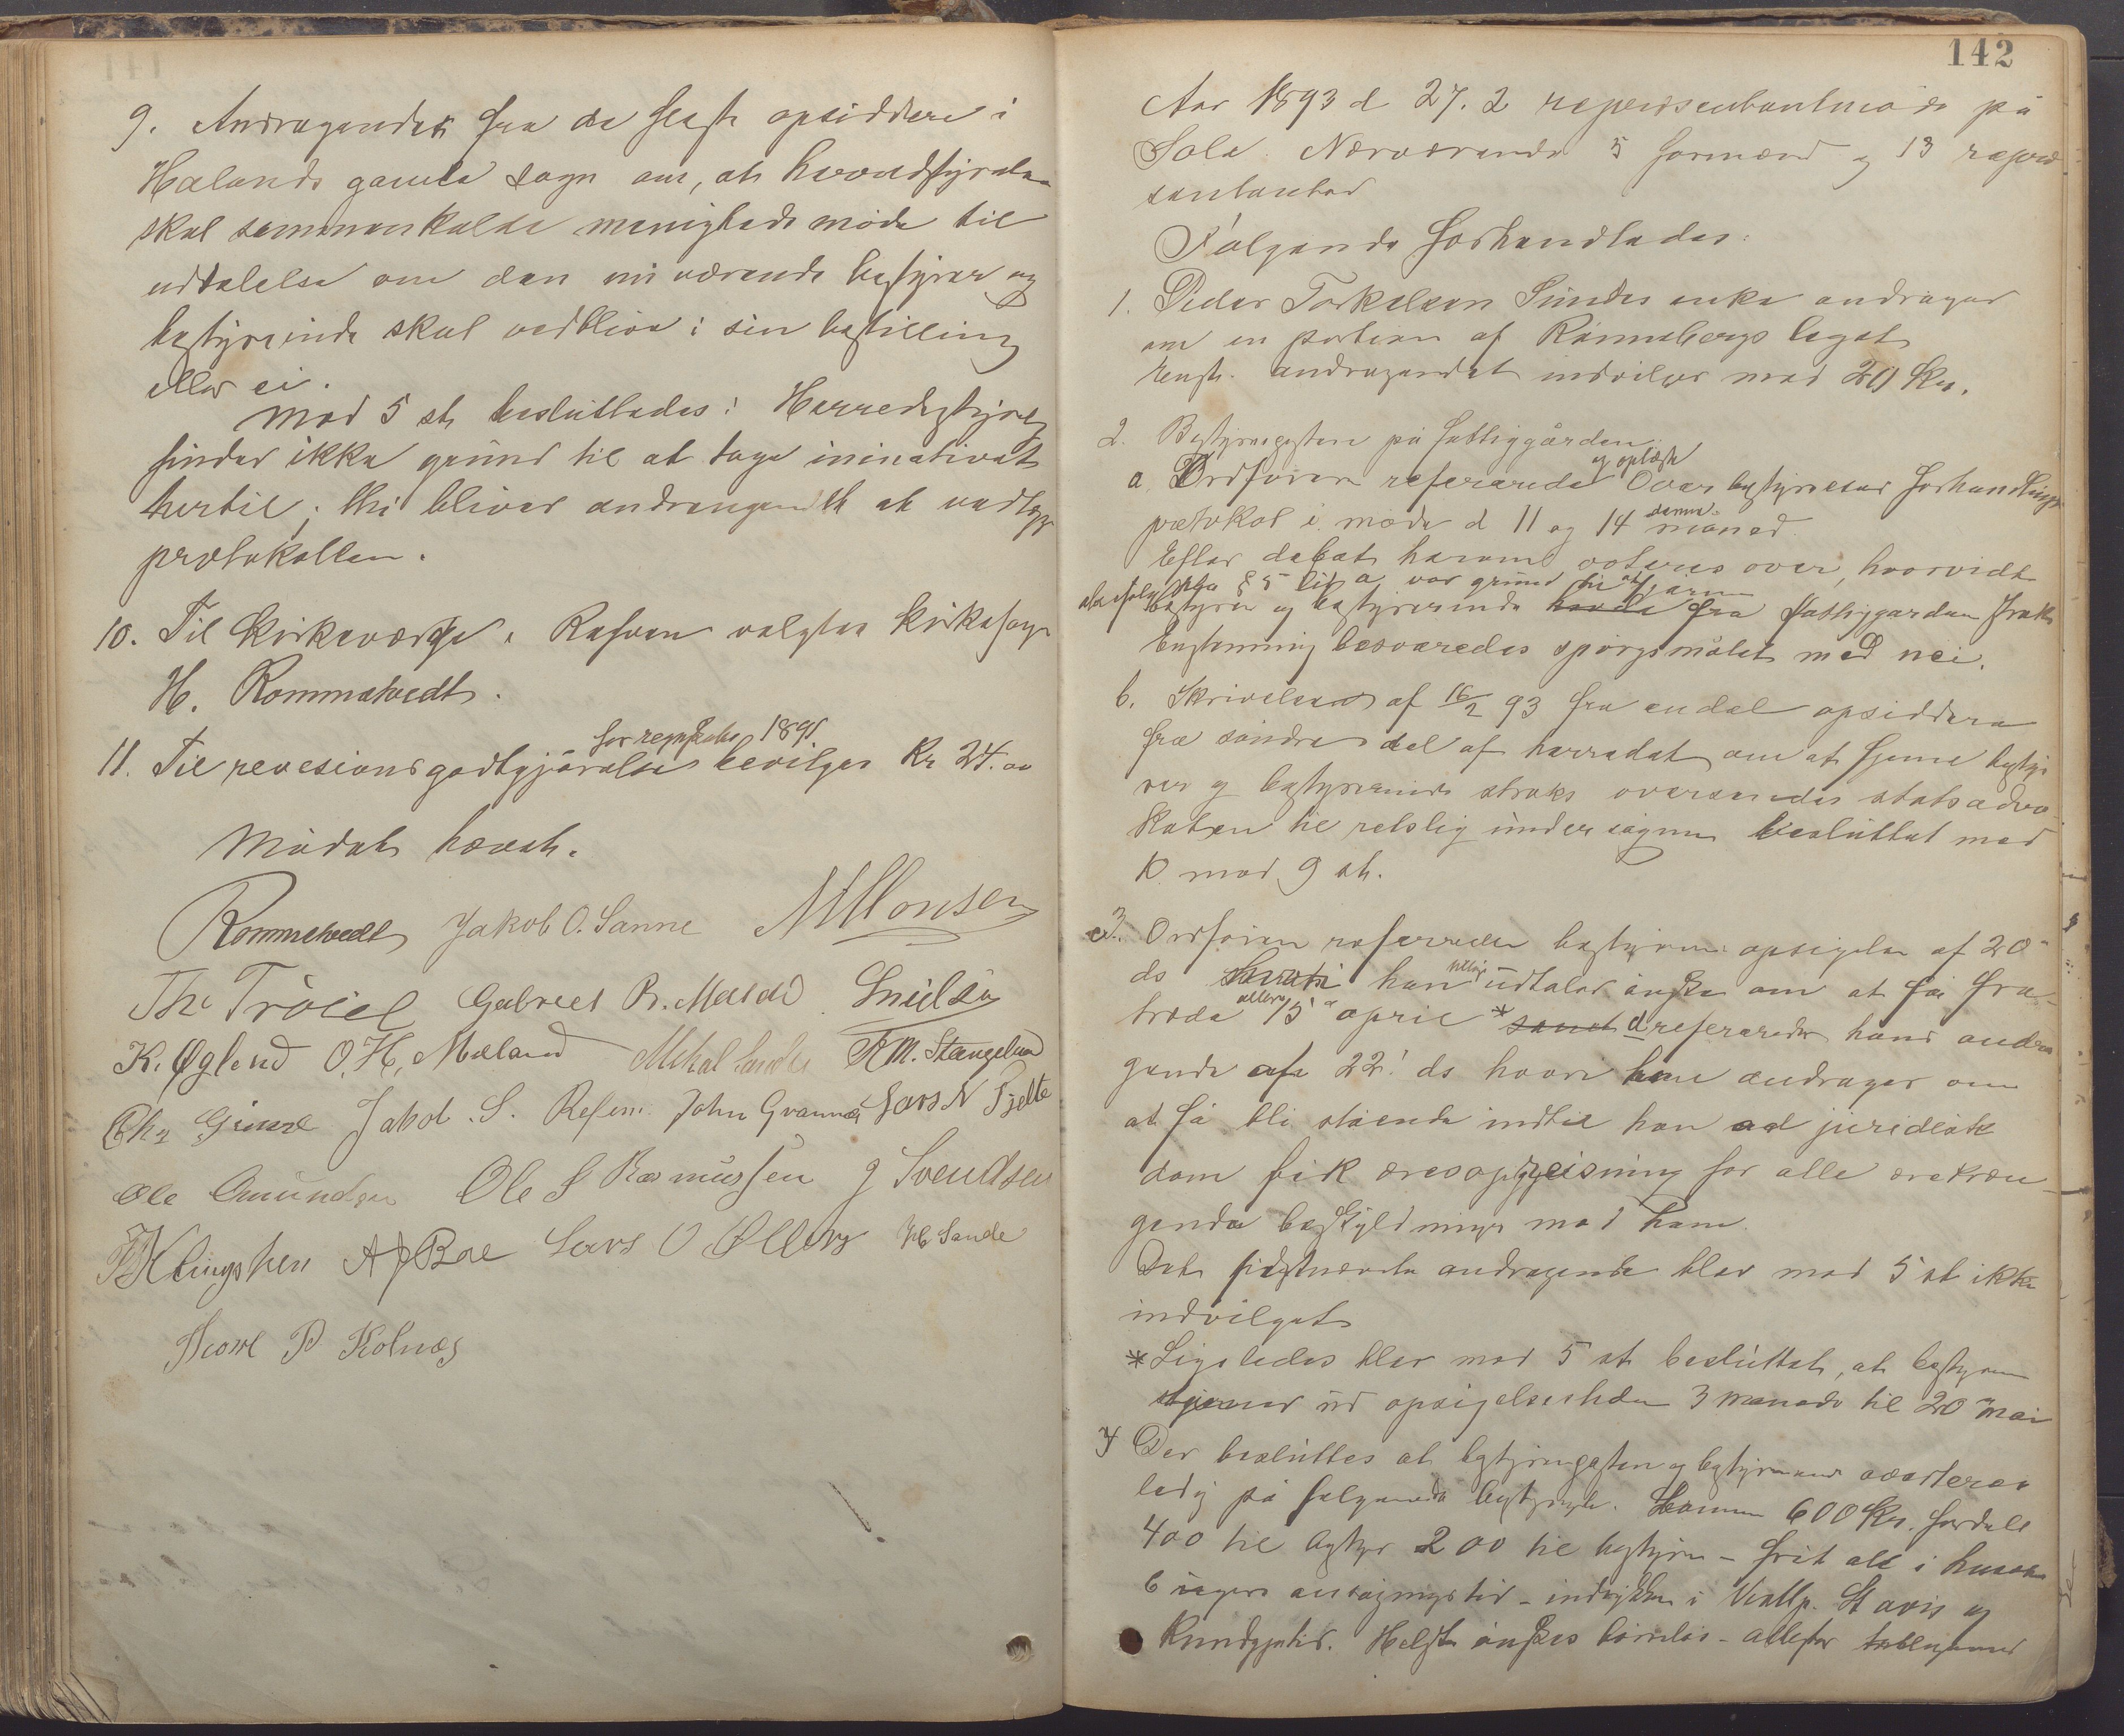 9. Andragendet fra de fleste opsiddere i
Hålands gamle sogn om, at herredstyrelsen
skal sammenkalde menigheds møde til
udtalelse om den nu værende bestyrer og
bestyrerinde skal vedblive i sin bestilling
eller ei.
Mod 5 st. besluttedes: Herredsstyrelsen
finder ikke grund til at tage ininativet
hertil; thi bliver andragendet at vedlægge
protokollen.
10. Til kirkeværge i Refsnes valgtes kirkesanger
H. Rommetvedt.
for regnskabs 1891
11. Til revesionsgodtgjørelse bevilges Kr 24.00
Mødet hævet.
Rommetvedt Jakob O. Sømme M Monsen
Th. Trøiel Gabriel R. Mæland Snielsen
K. Øglend O. H. Mæland Mikal Sande T. M. Stangeland
Chr Grude Jakob S. Refsnes John Grannes Lars N Tjelte
Ole Amundsen Ole S Rasmussen J Svendsen
A J Bøe Lars O Ølberg H Sande
P Kolnes
142
Aar 1893 d 27. 2 repræsentantmøde på
Sola. Nærværende 5 formænd og 13 repræ
sentanter
Følgende forhandledes:
1. Peder Torkelsen Sundes enke andrager
om en portion af Rønnebergs legat
Enst. andragendet indvilges med 20 Kr.
2. Bestyrerposten på fattiggården.
og oplæste
a Ordføreren refererede over bestyrelsens forhandlings
denne
protokol i møde d 11 og 14 måned.
Efter debat herom voteres over, hvorvidt
efter § 5 litr a var grund til at fjerne
bestyrer og bestyrerinde fra fattiggården straks
Enstemmig besvaredes spørgsmålet med nei.
b. Skrivelse af 16/2 93 fra endel opsiddere
fra søndre del af herredet om at fjerne besty
rer og bestyrerinde straks oversendes statsadvo
katen til retslig undersøgelse besluttet med
10 mod 9 st.
3. Ordføreren refererede bestyrerens opsigelse af 20
ds han tillige udtaler ønske om at få fra
træde allere 15de april * refereredes hans andra
gende af 22! ds hvori han andrager om
at få bli stående indtil han ved juridisk
dom fik æresopreisning for alle ærekræn
gende beskyldninger mod ham.
Det sidstnævnte andragende blev mod 5 st ikke
indvilget
* Ligeledes blev mod 5 st besluttet, at bestyreren
tjener ud opsigelsestiden 3 måneder til 20 mai
4 Der besluttes at bestyrerposten og bestyrerinde averteres
ledig på følgende. Lønnen 600 Kr. fordelt
400 til bestyrer 200 til bestyrerinde – frit alt i huset
6 ugers ansøgningstid – indrykkes i Vestlp. St avis og
Kundgjøtid. Helst ønskes barnløs – attester